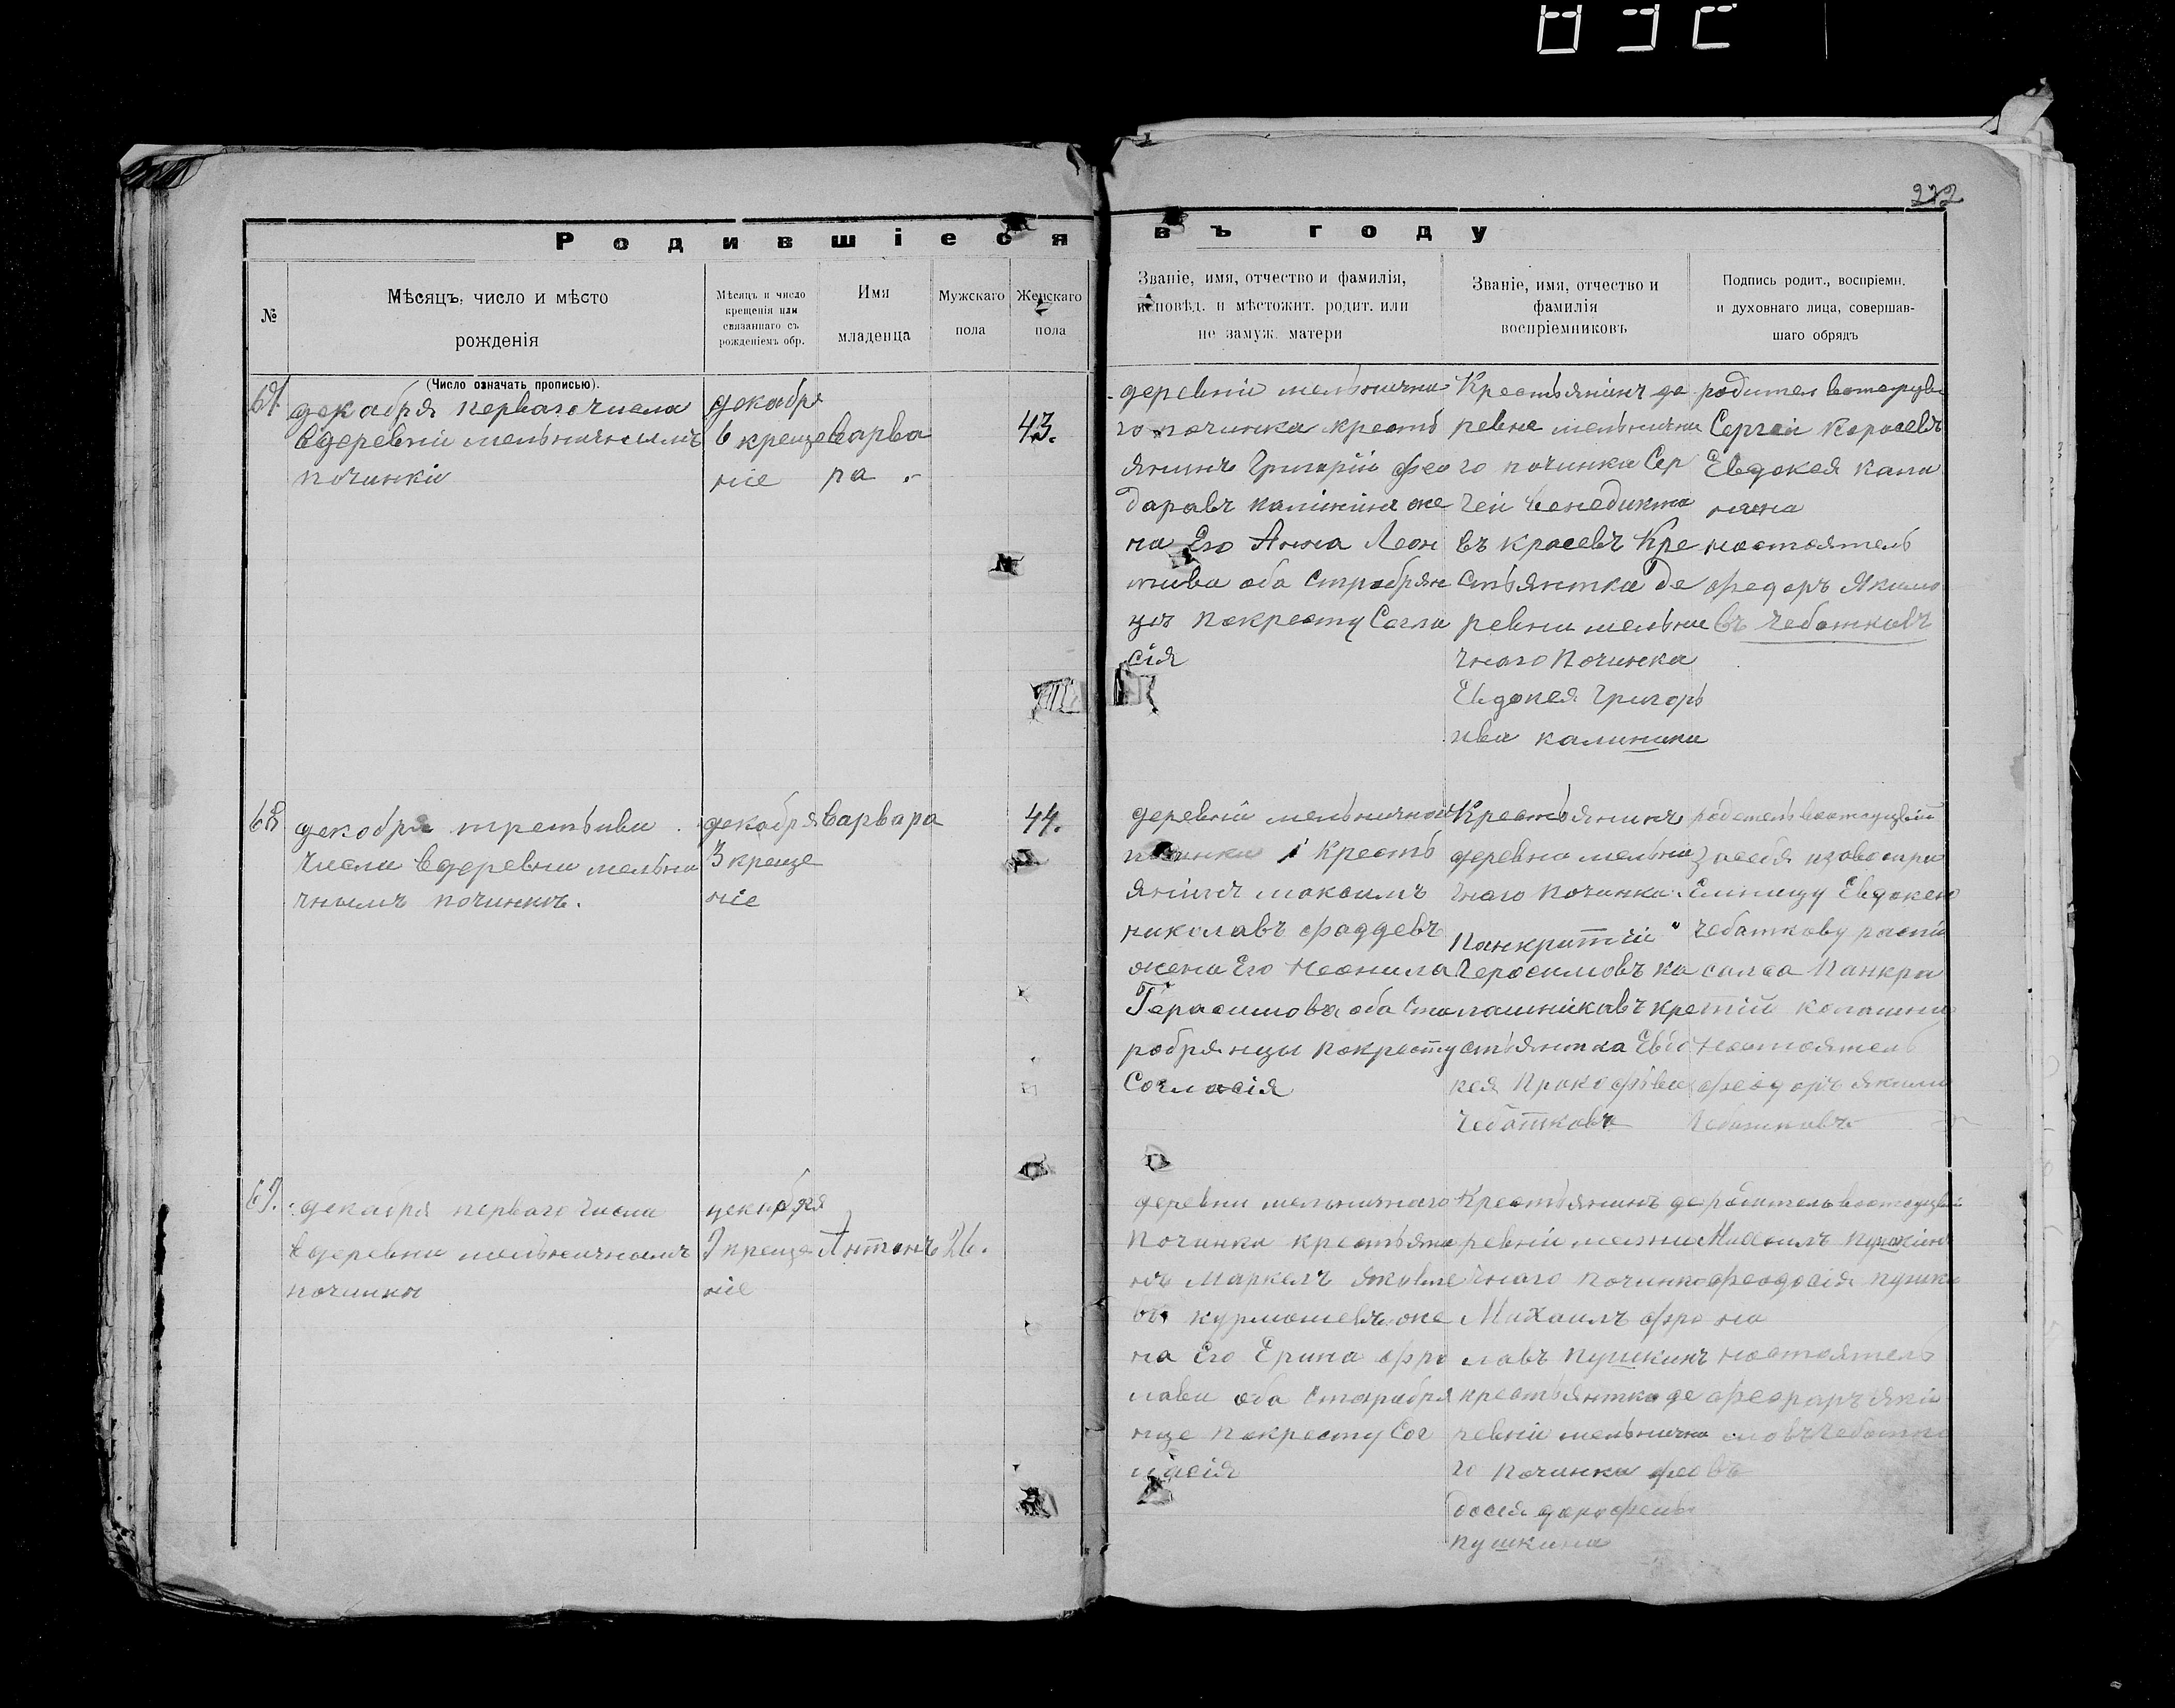 272
Родившіеся въ году
№
Мѣсяцъ, число и мѣсто
рожденія
(Число означать прописью).
Мѣсяцъ и число
крещенія или
связаннаго съ
рожденіемъ обр.
Имя
младенца
Мужскаго
пола
Женскаго
пола
Званіе, имя, отчество и фамилія,
исповѣд. и мѣстожит. родит. или
не замуж. матери
Званіе, имя, отчество и
фамилія
воспріемниковъ
Подпись родит., воспріемн.
и духовнаго лица, совершав-
шаго обрядъ
67.
декабря перваго числа
вдеревнѣ мельничнымъ
починкѣ
декабря
6 креще
ніе
Варва
ра
43.
деревни мельнично
го починка кресть
янинъ Григорій Фео
даравъ калинин же
на Его Анна Леон
тива оба Старобрян
цы покресту Согла
сія
Крестьянинъ де
ревне мельнични
го починка Сер
гей Венедикто
въ Красевъ Кре
стьянтка де
ревни мельни
чнаго Починка
Евдокея Григорь
ива калинина
Сергей Карасевъ
Евдокея кали
нина
настоятель
Федоръ Якимо
въ Чебатковъ
68
декобря третьива
числа вдеревни мельни
чнымъ починкѣ.
декабря
3 креще
ніе
варвара
44.
деревни мельничнаго
починка Кресть
янинъ максимъ
николавъ Фаддевъ
жена Его Неонила
Герасимова оба Ста
робрянцы покресту
Согласія
Крестьянинъ
деревна мельни
чнаго Починка
Панкратій
Геросимовъ ка
лашниковъ кре
стьянтка Евдо
кея Прокофьва
Чебаткова
за себя и за воспри
Емницу Евдокею
Чебаткову распи
салса Панкра
тій калашни
Настоятель
Феодоръ якимо
Чебатковъ
69.
декабря перваго числа
вдеревни мельничнымъ
починки
декабря
7 креще
ніе
Антонъ
26.
деревни мельничнаго
Починка крестьяни
нъ Маркелъ яковле
въ курмашевъ же
на Его Ерина Фро
лава оба Старобря
нце покресту Сог
ласія
Крестьянинъ де
ревніи мельни
чнаго починка
Михаилъ фро
лавъ Пушкинъ
крестьянтка де
ревніи мельнична
го Починка фео
досія дорофеев
пушкина
Михаилъ Пушкин
Феодосія пушки
на
настоятель
Феораръ яки
мовъ Чебатко
въ